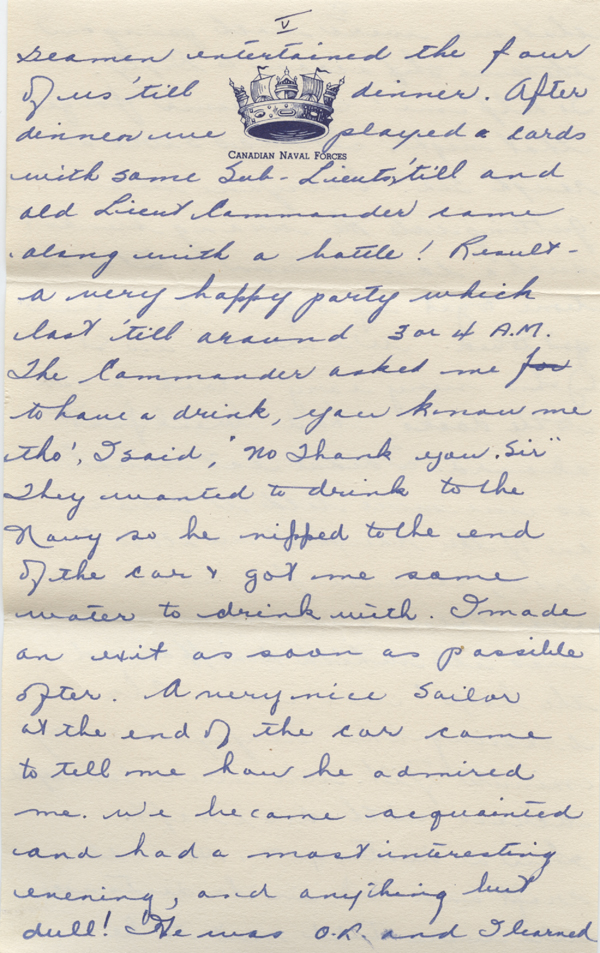 V
seamen entertained the four
of us 'till dinner. After
dinner we played cards
CANADIAN NAVAL FORCES
with some Sub-Lieuts, 'till and
old Lieut Commander came
along with a bottle! Result -
a very happy party which
last 'till around 3 or 4 A.M.
The Commander asked me for
to have a drink, you know me
tho', I said, "No Thank you, Sir"
They wanted to drink to the
Navy so he nipped to the end
of the car & got me some
water to drink with. I made
an exit as soon as possible
after. A very nice Sailor
at the end of the car came
to tell me how he admired
me. We became acquainted
and had a most interesting
evening, and anything but
dull! He was O.R. and I learned